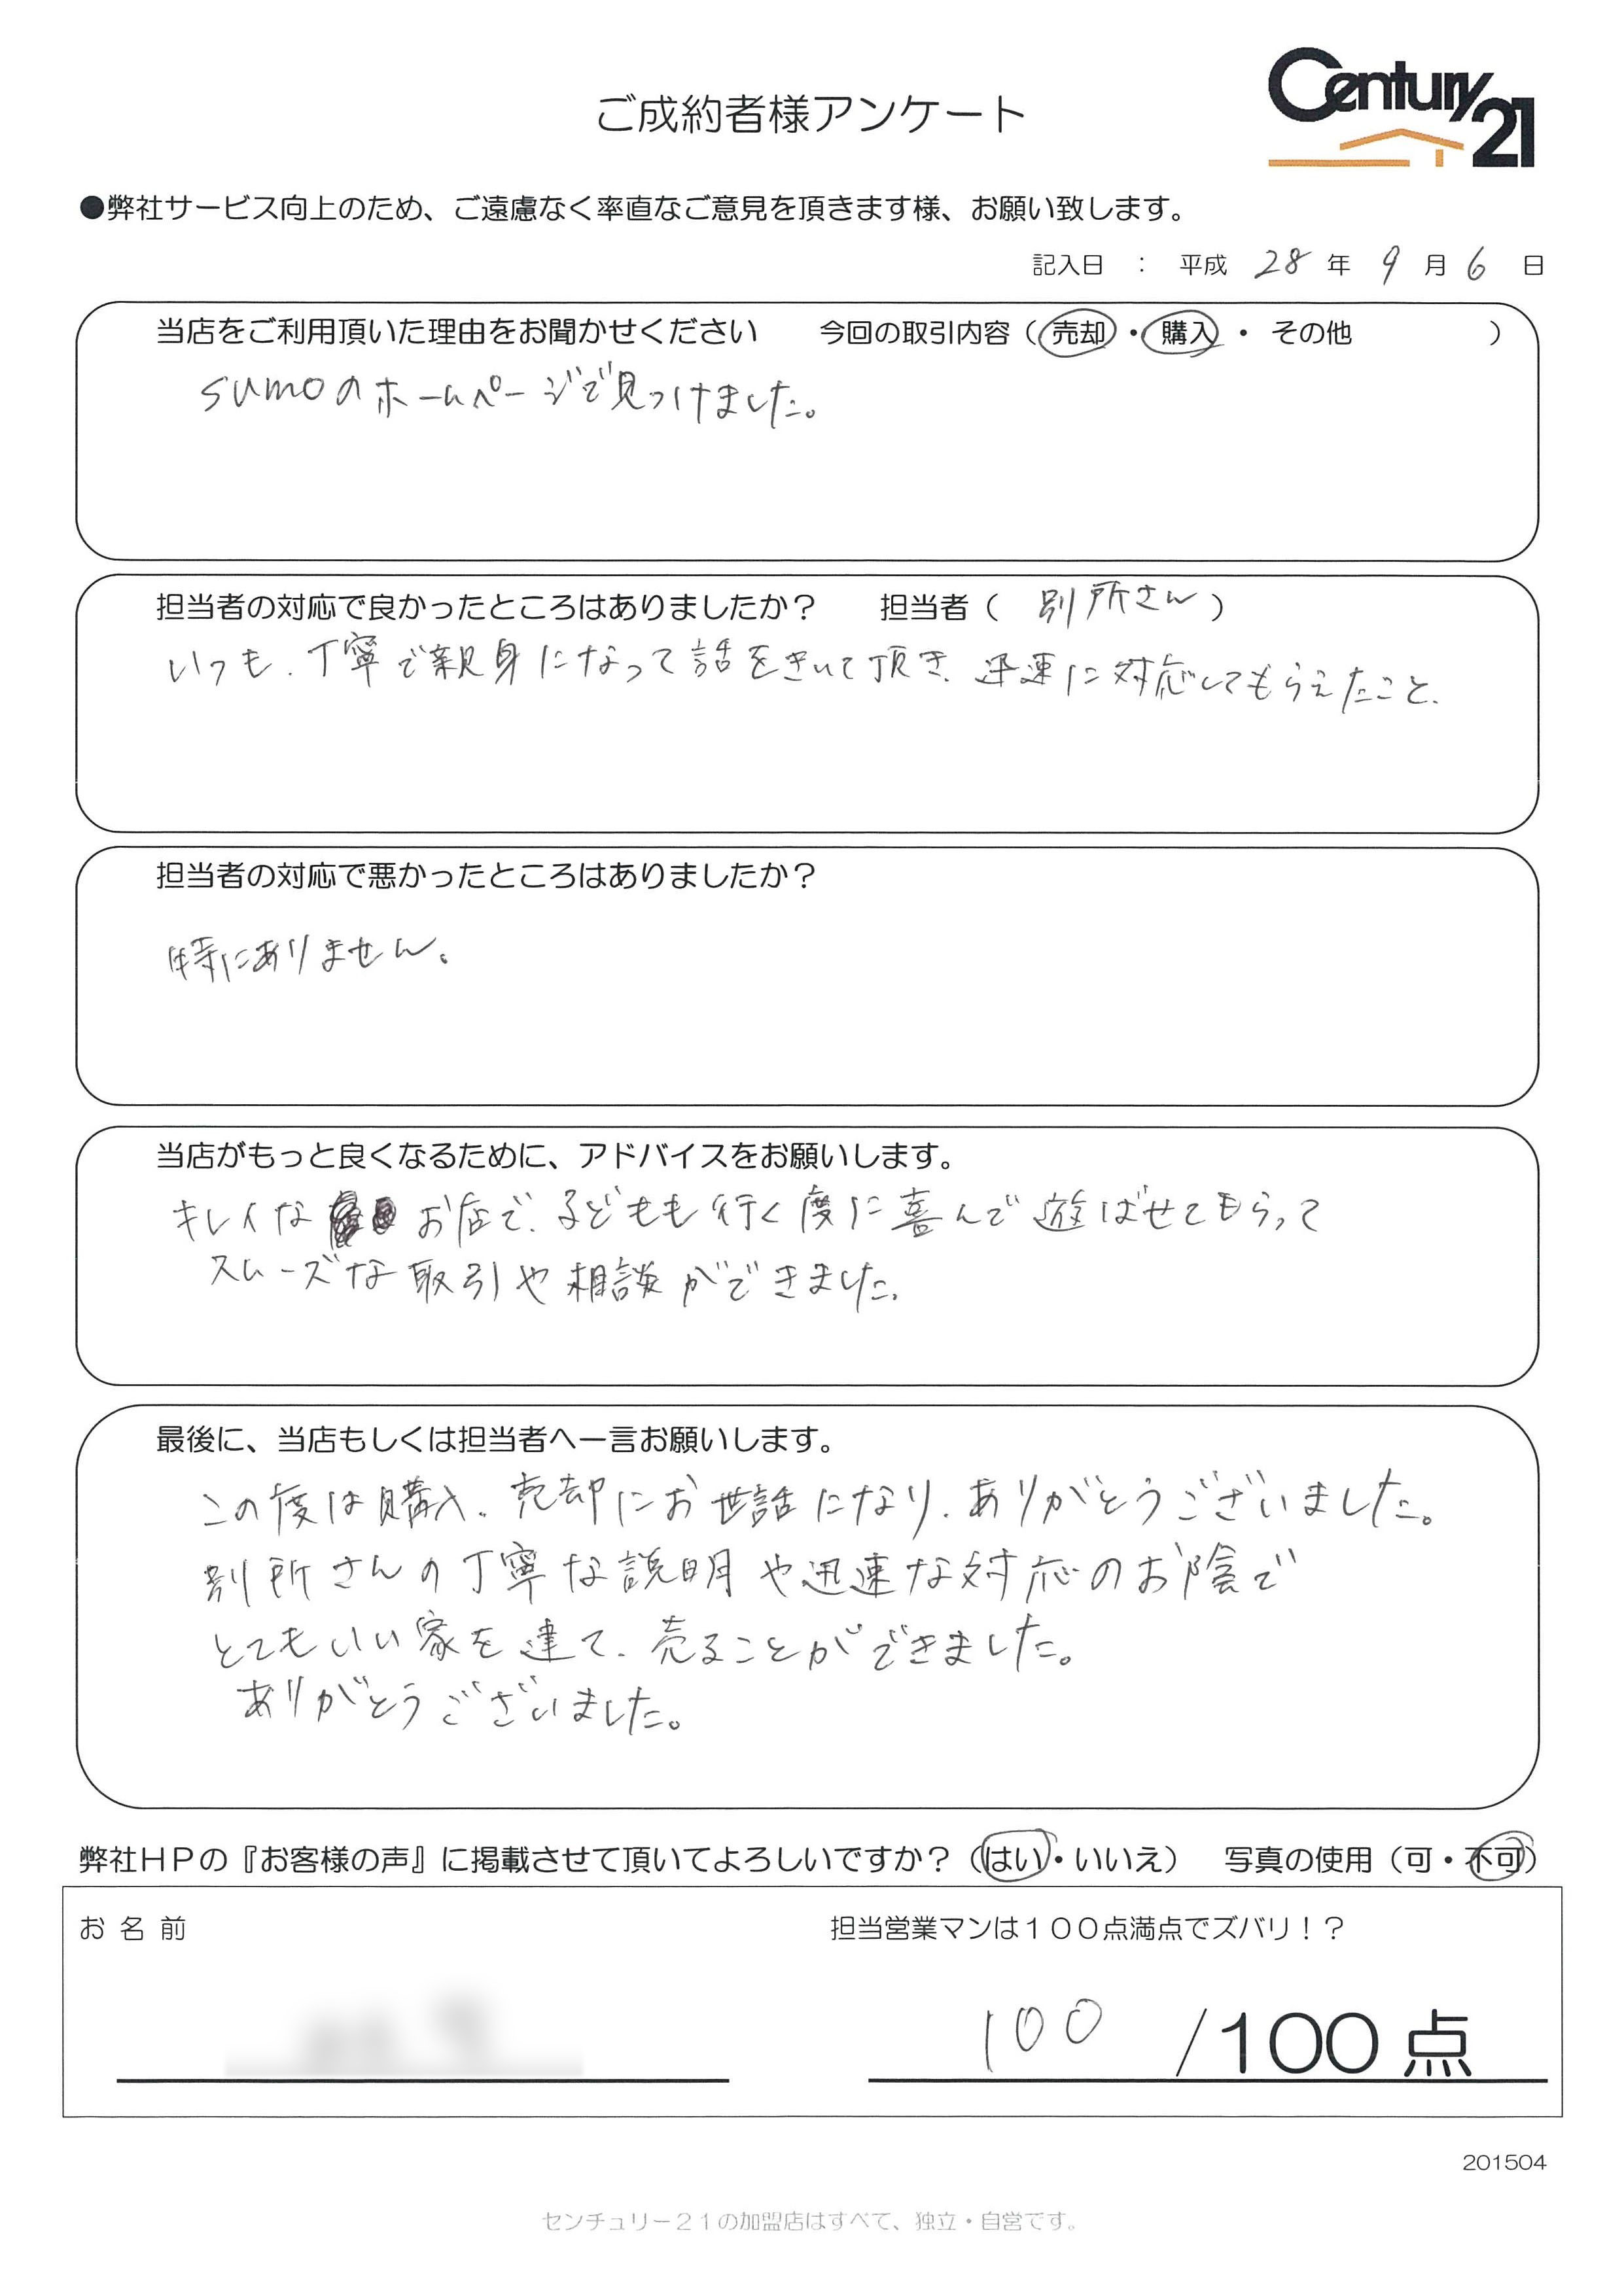 ご成約者様アンケート
Century 21
●弊社サービス向上のため、ご遠慮なく率直なご意見を頂きます様、お願い致します。
記入日 ： 平成 28 年 9 月 6 日
当店をご利用頂いた理由をお聞かせください 今回の取引内容（ 売却 ・ 購入 ・ その他 ）
sumoのホームページで見つけました。
担当者の対応で良かったところはありましたか？ 担当者（ 別所さん ）
いつも、丁寧で親身になって話をきいて頂き、迅速に対応してもらえたこと、
担当者の対応で悪かったところはありましたか？
特にありません。
当店がもっと良くなるために、アドバイスをお願いします。
キレイな お店で、子どもも行く度に喜んで遊ばせてもらって
スムーズな取引や相談ができました。
最後に、当店もしくは担当者へ一言お願いします。
この度は購入、売却にお世話になり、ありがとうございました。
別所さんの丁寧な説明や迅速な対応のお陰で
とてもいい家を建て、売ることができました。
ありがとうございました。
弊社ＨＰの『お客様の声』に掲載させて頂いてよろしいですか？（はい・いいえ） 写真の使用（可・不可）
お 名 前 担当営業マンは１００点満点でズバリ！？
100 /100 点
201504
センチュリー２１の加盟店はすべて、独立・自営です。